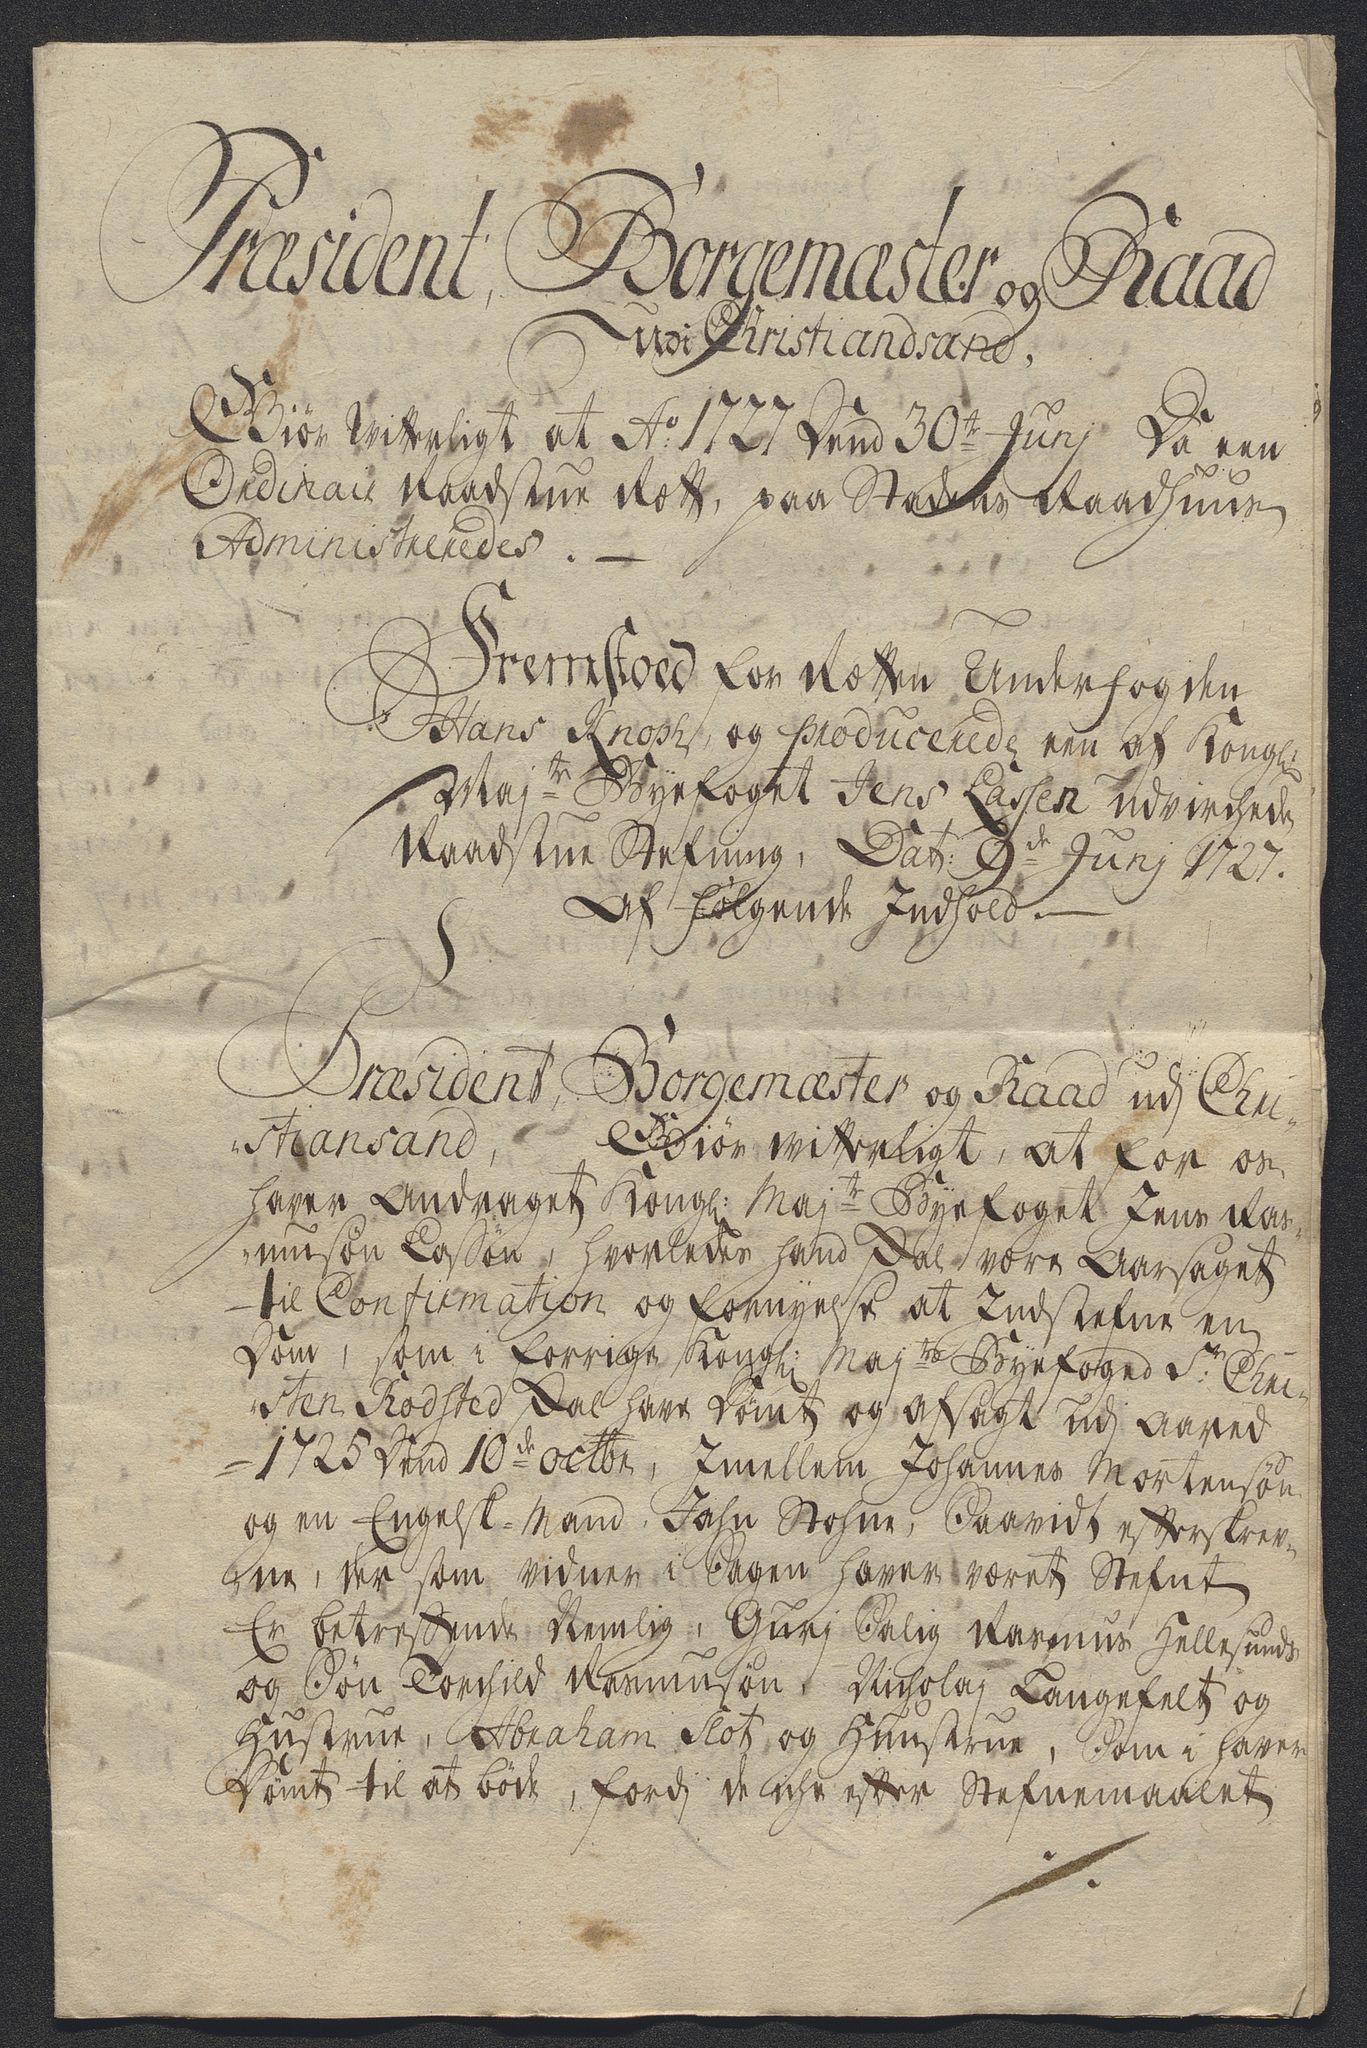 Præsident, Borgemæster og Raad
udi Christiandsand,
Giør Witterligt at Ao. 1727 Dend 30te Junj Da een
Ordinair Raadstue Rætt, paa Stadens Raadhuus
Administreredes. —
Fremstoed for Rætten Underfogden
Hans Knoph, og producerede een af Kongl:
Majts Byefoget Jens Lassen udvirchede
Raadstue Stefning, Dat: 9de Junj 1727.
Af følgende Indhold. —
Præsident, Borgemæster og Raad udj Chri-
-stiansand, Giør Witterligt, at for os
haver Andraget Kongl: Majts Byefoget Jens Ras-
-musøn Lassøn, hvorledes hand Skal være Aarsaget
til Confirmation og fornyelse at Indstefne en
Dom, som i forrige Kongl: Majts Byefoged Sr: Chri-
-sten Rodsted Skal have Dømt og afsagt udj Aared
1725 Dend 10de octbr, Imellem Johannes Mortensøn
og en Engelsk-Mand, John Stohne, Saavidt efterskrev-
-ne, der som vidner i Sagen haver været Stefnt
Er betreffende Nemlig, Gurj Salig Rasmus Hellesunds
og Søn Torchild Rasmusøn, Nicholaj Langefelt og
Hustrue, Abraham Slot og Huustrue, Som i haver
Dømt til at bøde, fordj de iche efter Stefnemaalet